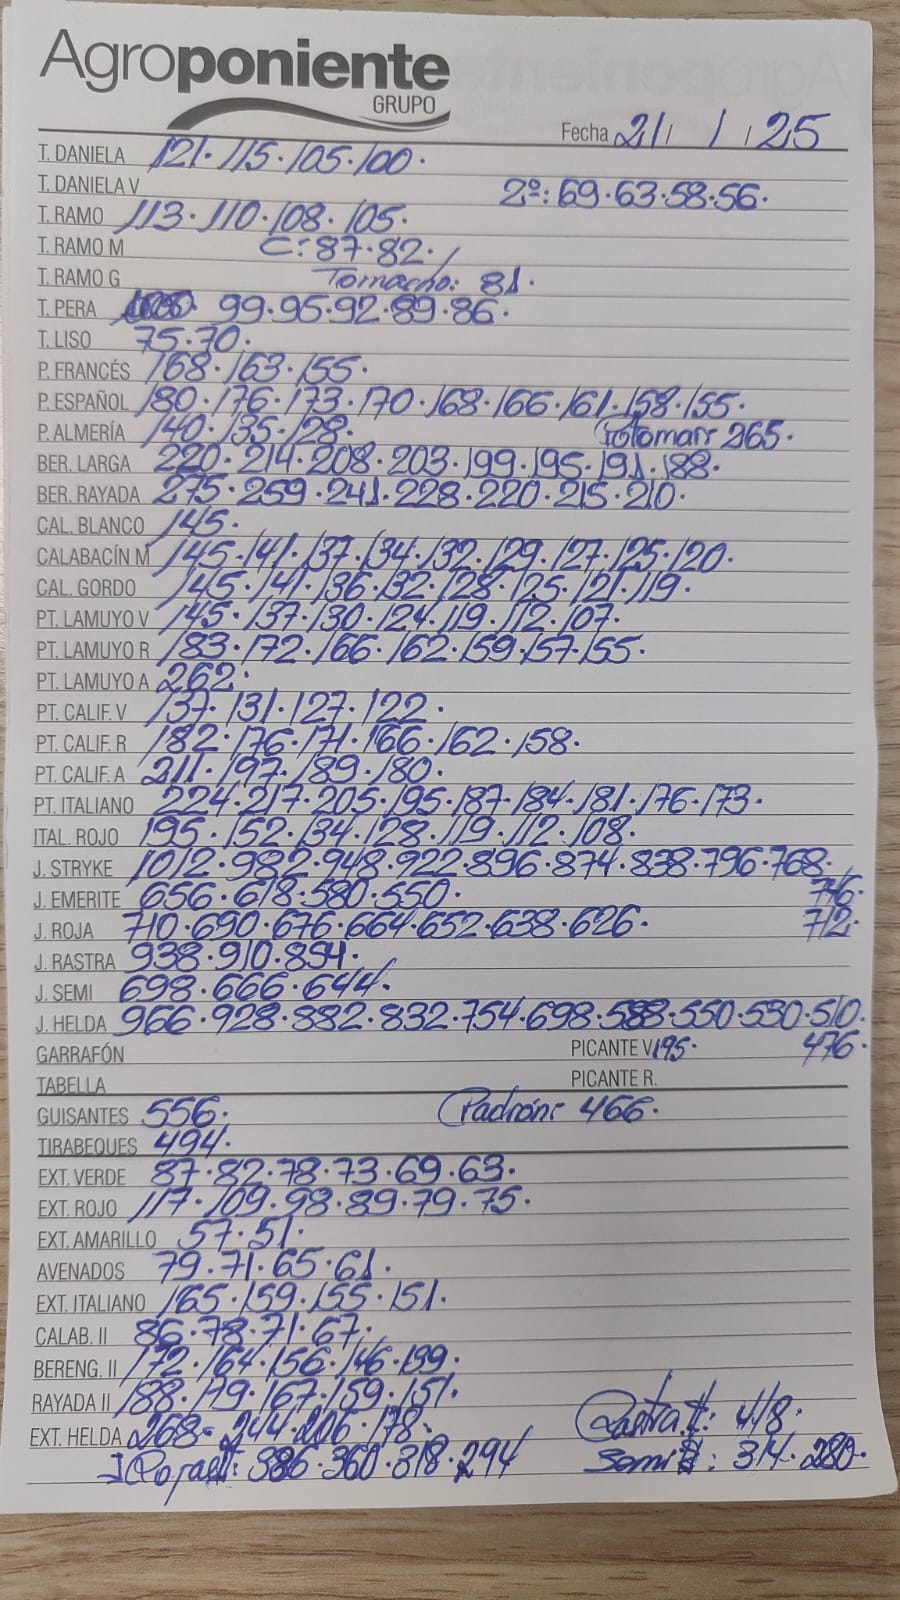 Agroponiente
GRUPO
Fecha 21/ 1 /25
T. DANIELA 121.115.105.100.
T. DANELA V 2ª: 69.63.58.56.
T. RAMO 113.110.108.105.
T. RAMO M C: 87.82.
T. RAMO G Tomacho: 81.
T. PERA 99.95.92.89.86.
T. LISO 75.70.
P. FRANCÉS 168.163.155.
P. ESPAÑOL 180.176.173.170.168.166.161.158.155.
P. ALMERÍA 140.135.128. 265.
BER. LARGA 220.214.208.203.199.195.191.188.
BER. RAYADA 275.259.241.228.220.215.210.
CAL. BLANCO 145.
CALABACÍN M 145.141.137.134.132.129.127.125.120.
CAL. GORDO 145.141.136.132.128.125.121.119.
PT. LAMUYO V 145.137.130.124.119.112.107.
PT. LAMUYO R 183.172.166.162.159.157.155.
PT. LAMUYO A 262.
PT. CALIF. V 137.131.127.122.
PT. CALIF. R 182.176.171.166.162.158.
PT. CALIF. A 211.197.189.180.
PT. ITALIANO 224.217.205.195.187.184.181.176.173.
ITAL. ROJO 195.152.134.128.119.112.108.
J. STRYKE 1012.982.948.922.896.874.838.796.768.
J. EMERITE 656.618.580.550. 746.
J. ROJA 710.690.676.664.652.638.626. 712.
J. RASTRA 938.910.894.
J. SEMI 698.666.644.
J. HELDA 966.928.882.832.754.698.588.550.530.510.
GARRAFÓN PICANTE V. 195. 476.
TABELLA PICANTE R.
GUISANTES 556. Padrón: 466.
TIRABEQUES 494.
EXT. VERDE 87.82.78.73.69.63.
EXT. ROJO 117.109.98.89.79.75.
EXT. AMARILLO 57.51.
AVENADOS 79.71.65.61.
EXT. ITALIANO 165.159.155.151.
CALAB. II 86.78.71.67.
BERENG. II 172.164.156.146.139.
RAYADA II 188.179.167.159.151.
EXT. HELDA 268.244.206.178. Rastra II: 418.
J Roja II: 386.360.318.294 Semi II: 314.280.